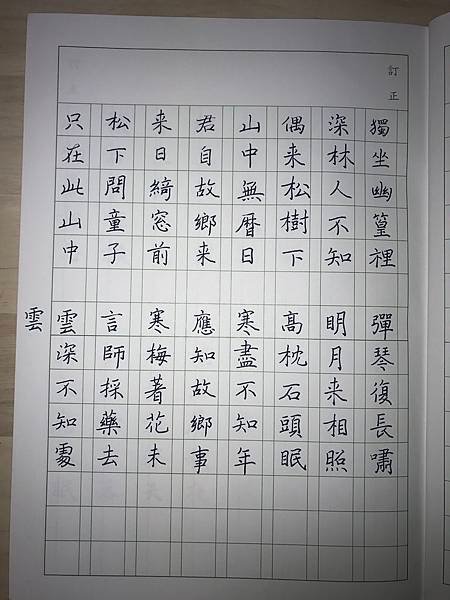 訂正
獨坐幽篁裡 彈琴復長嘯
深林人不知 明月来相照
偶来松樹下 高枕石頭眠
山中無暦日 寒盡不知年
君自故鄉来 應知故鄉事
来日綺窓前 寒梅著花未
松下問童子 言師採藥去
只在此山中 雲深不知處
雲